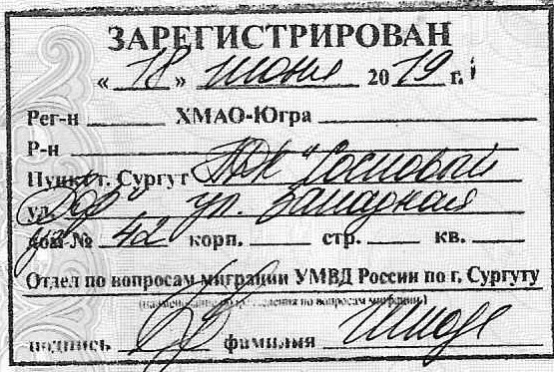 ЗАРЕГИСТРИРОВАН
« 18 » июня 2019 г.
Рег-н ХМАО-Югра
Р-н
Пункт г. Сургут ПДК "Сосновый
ул. ул. Западная
дом № 42 корп. стр. кв.
Отдел по вопросам миграции УМВД России по г. Сургуту
(наименование подразделения по вопросам миграции)
подпись фамилия